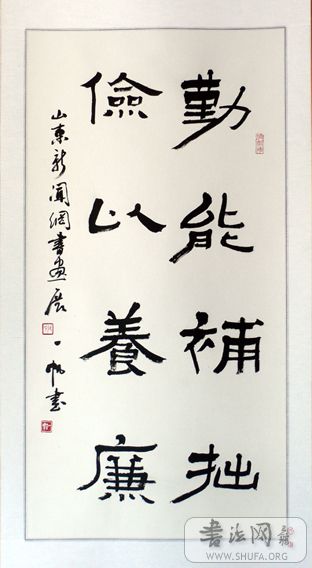 勤能補拙
儉以養廉
山東新聞網書畫展
一帆書
書法网
WWW.SHUFA.ORG